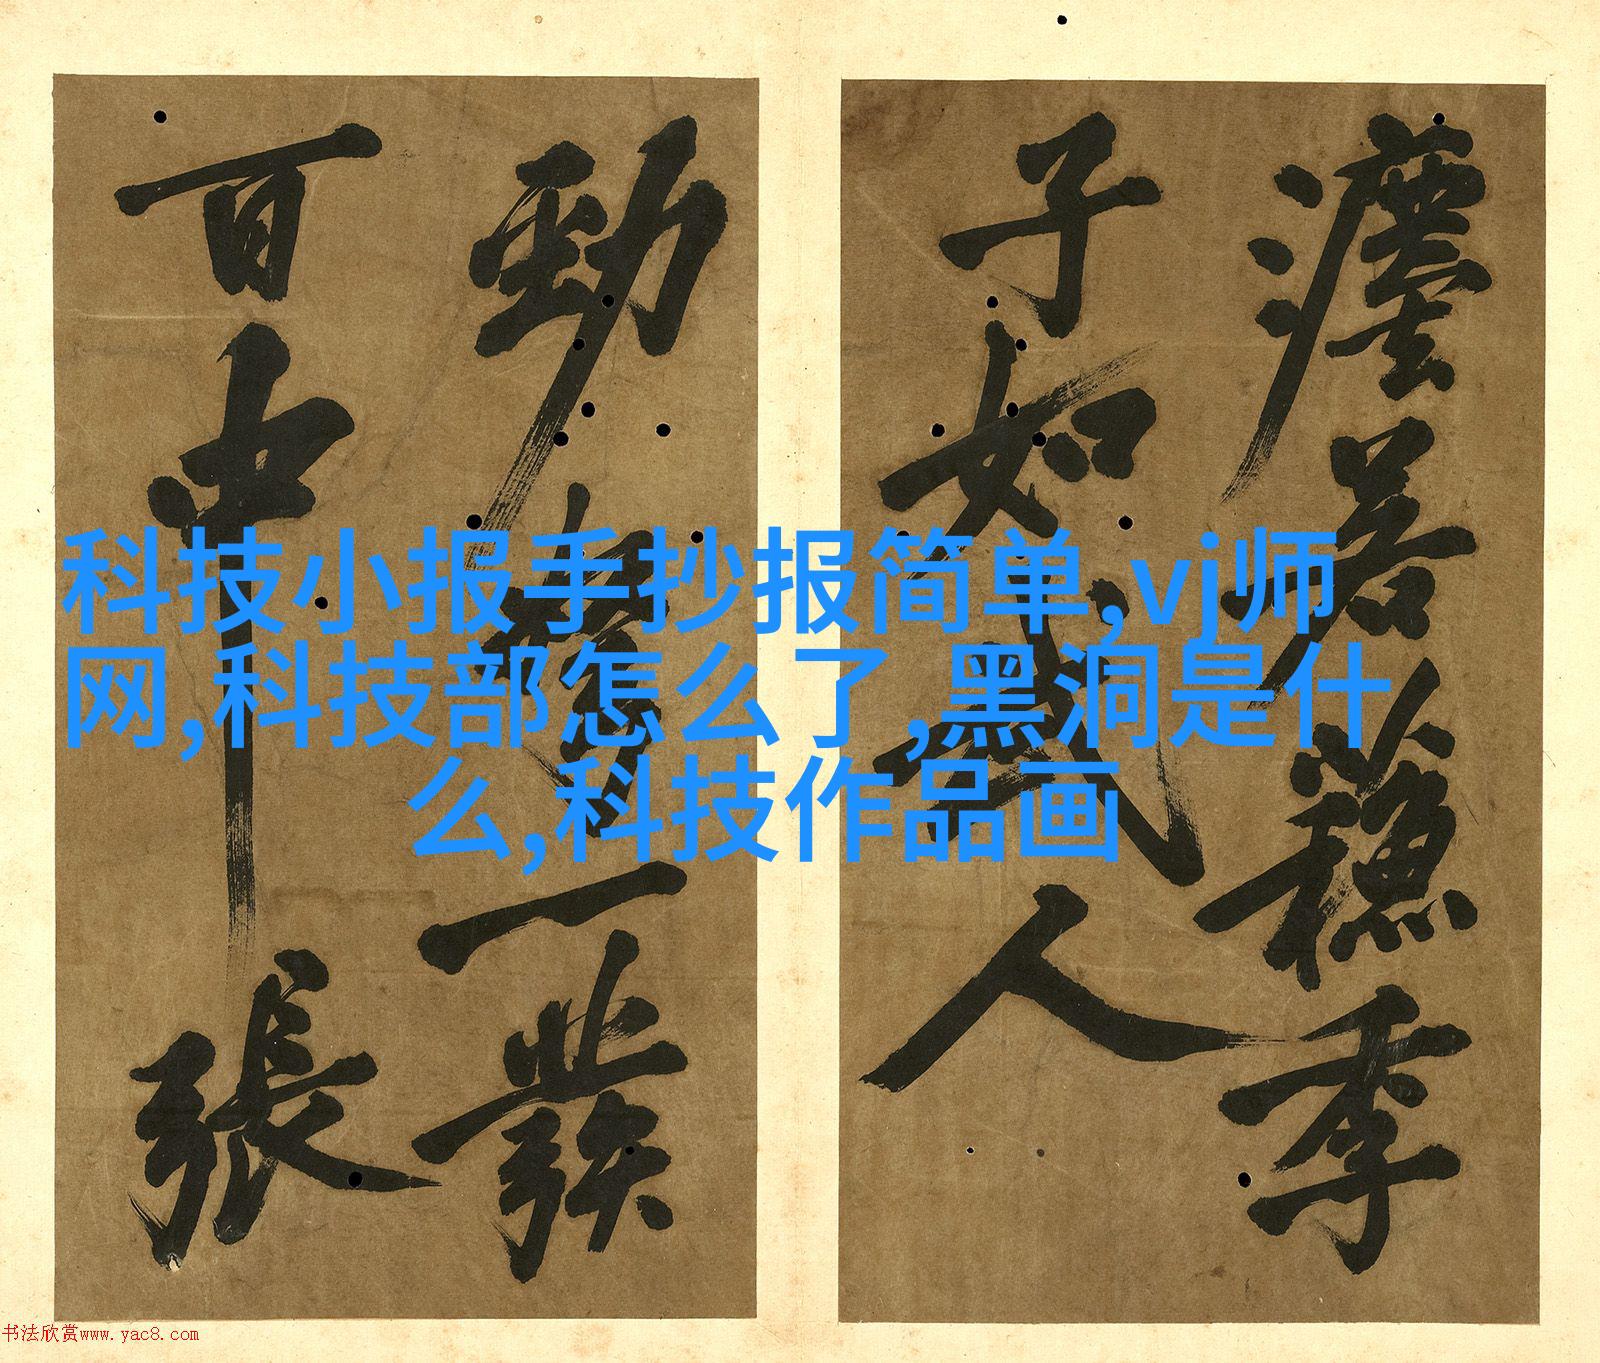 科技小报手抄报简单,vj师
网,科技部怎么了,黑洞是什
么,科技作品画
若蘓季
子如武人
勁弩一發
百中張
书法欣赏www.yac8.com